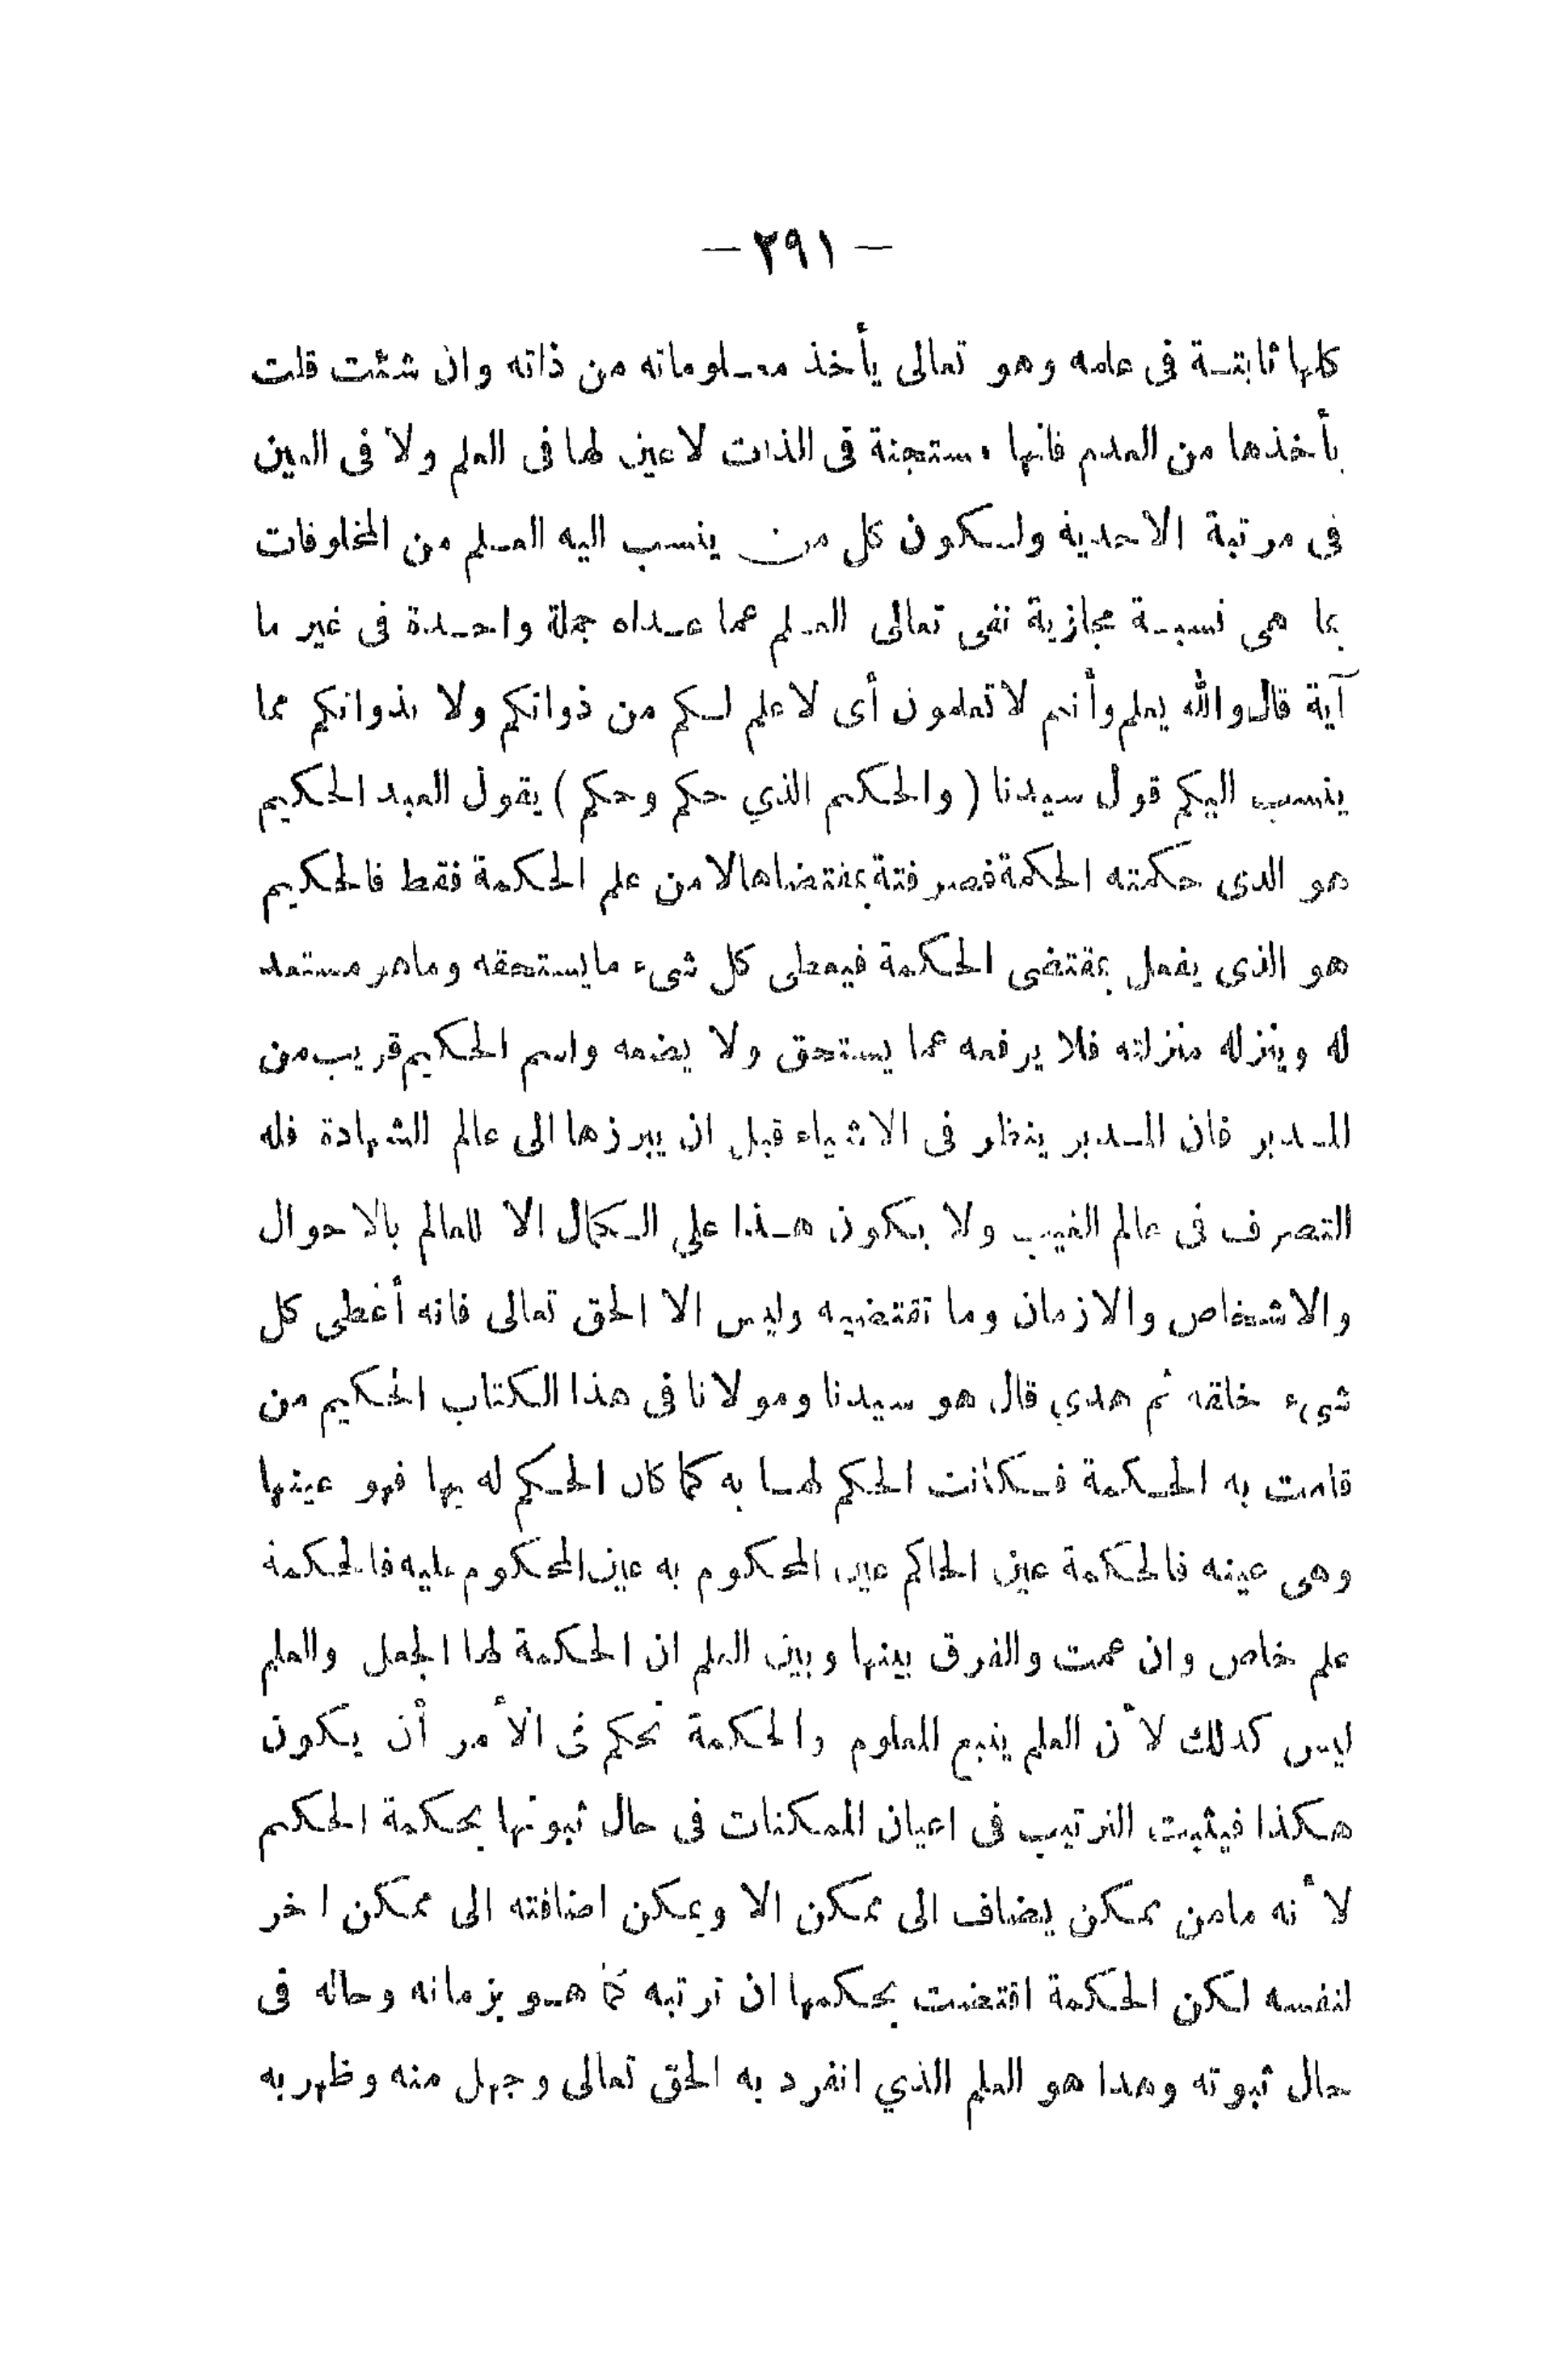 — ٢٩١ —
كلها ثابتـة فى علمه وهو تعالى يأخذ معـلوماته من ذاته وان شئت قلت
يأخذها من العدم فانها مستجنة فى الذات لاعين لها فى العلم ولا فى العين
فى مرتبة الاحدية ولـكون كل من ينسب اليه العـلم من المخلوقات
بما هى نسبـة مجازية نفى تعالى العـلم عما عـداه جملة واحـدة فى غير ما
آية قال والله يعلم وأنتم لاتعلمون أى لاعلم لـكم من ذواتكم ولا بذواتكم مما
ينسب اليكم قول سيدنا ( والحكيم الذي حكم وحكم ) يقول العبد الحكيم
هو الذى حكمته الحكمة فصرفتة بمقتضاها لا من علم الحكمة فقط فالحكيم
هو الذى يفعل بمقتضى الحكمة فيعطى كل شىء مايستحقه وماهو مستعد
له وينزله منزلته فلا يرفعه عما يستحق ولا يضعه واسم الحكيم قريب من
المـدبر فان المـدبر ينظر فى الاشياء قبل ان يبرزها الى عالم الشهادة فله
التصرف فى عالم الغيب ولا يكون هـذا علي الـكمال الا للعالم بالاحوال
والاشخاص والازمان وما تقتضيه وليس الا الحق تعالى فانه أعطى كل
شىء خلقه ثم هدي قال هو سيدنا ومولانا فى هذا الكتاب الحكيم من
قامت به الحـكمة فـكانت الحكم لهـا به كما كان الحـكم له بها فهو عينها
وهى عينه فالحكمة عين الحاكم عين المحكوم به عين المحكوم عليه فالحكمة
علم خاص وان عمت والفرق بينها وبين العلم ان الحكمة لها الجعل والعلم
ليس كذلك لأن العلم يتبع المعلوم والحكمة تحكم فى الأمر أن يكون
هـكذا فيثبت الترتيب فى اعيان الممكنات فى حال ثبوتها بحكمة الحكيم
لأنه مامن ممكن يضاف الى ممكن الا ويمكن اضافته الى ممكن اخر
لنفسه لـكن الحكمة اقتضت بحكمها ان ترتبه كما هـو بزمانه وحاله فى
حال ثبوته وهذا هو العلم الذي انفرد به الحق تعالى وجهل منه وظهر به